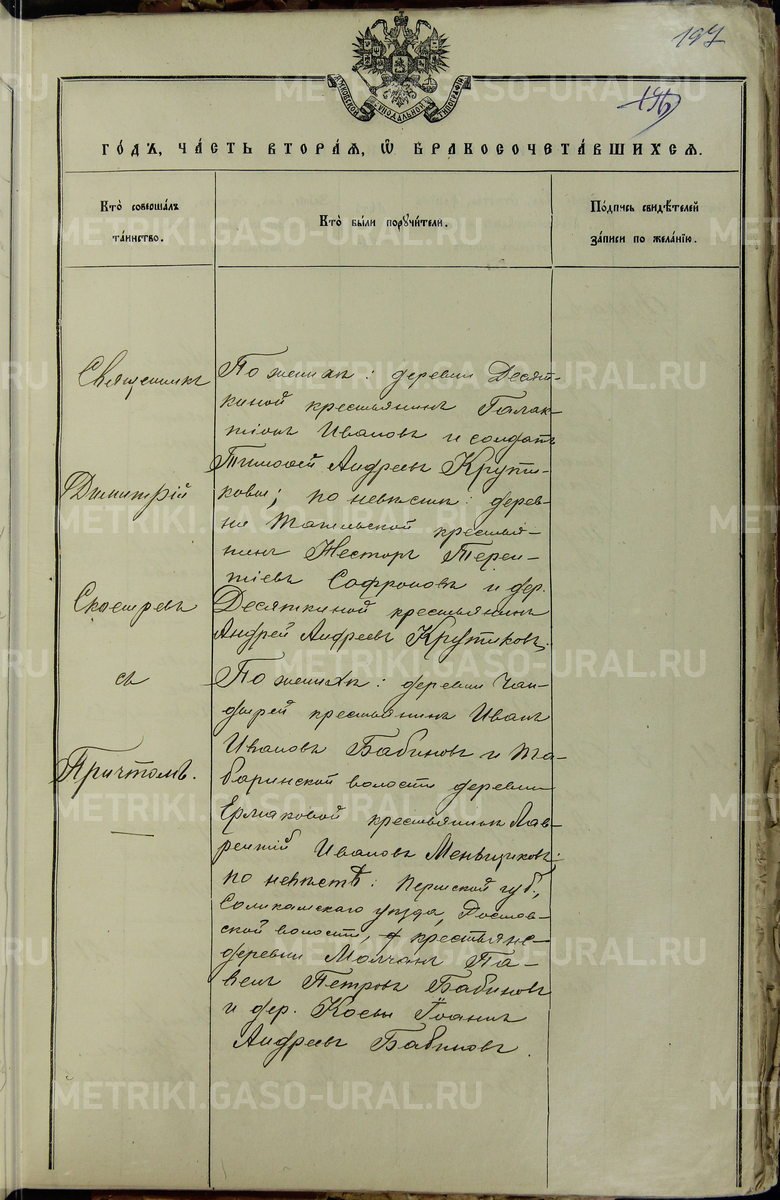 197
МОСКОВСКОЙ СѴНОДАЛЬНОЙ ТИПОГРАФІИ
ГО́ДЪ, ЧА́СТЬ ВТОРА́Я, Ѡ҆ БРАКОСОЧЕТА́ВШИХСЯ.
Кто̀ соверша́лъ
та́инство.
Кто̀ бы́ли порꙋчи́тели.
По́дпись свидѣ́телей
за́писи по жела́нію.
Священникъ
Димитрій
Скостревъ
съ
Причтомъ.
По женихѣ: деревни Десят-
киной крестьянинъ Галак-
тіонъ Ивановъ и солдатъ
Тимофей Андреевъ Крути-
ковы; по невѣстѣ: дерев-
ни Тагильской крестья-
нинъ Несторъ Терен-
тіевъ Софроновъ и дер.
Десяткиной крестьянинъ
Андрей Андреевъ Крутиковъ.
По женихѣ: деревни Чан-
дырей крестьянинъ Иванъ
Ивановъ Бабиновъ и Та-
баринской волости деревни
Ермаковой крестьянинъ Лав-
рентій Ивановъ Меньщиковъ;
по невѣстѣ: Пермской губ.,
Соликамскаго уѣзда,
ской волости, крестьяне
деревни Молчанъ Па-
велъ Петровъ Бабиновъ
и дер. Косы Іоаннъ
Андреевъ Бабиновъ.
METRIKI.GASO-URAL.RU